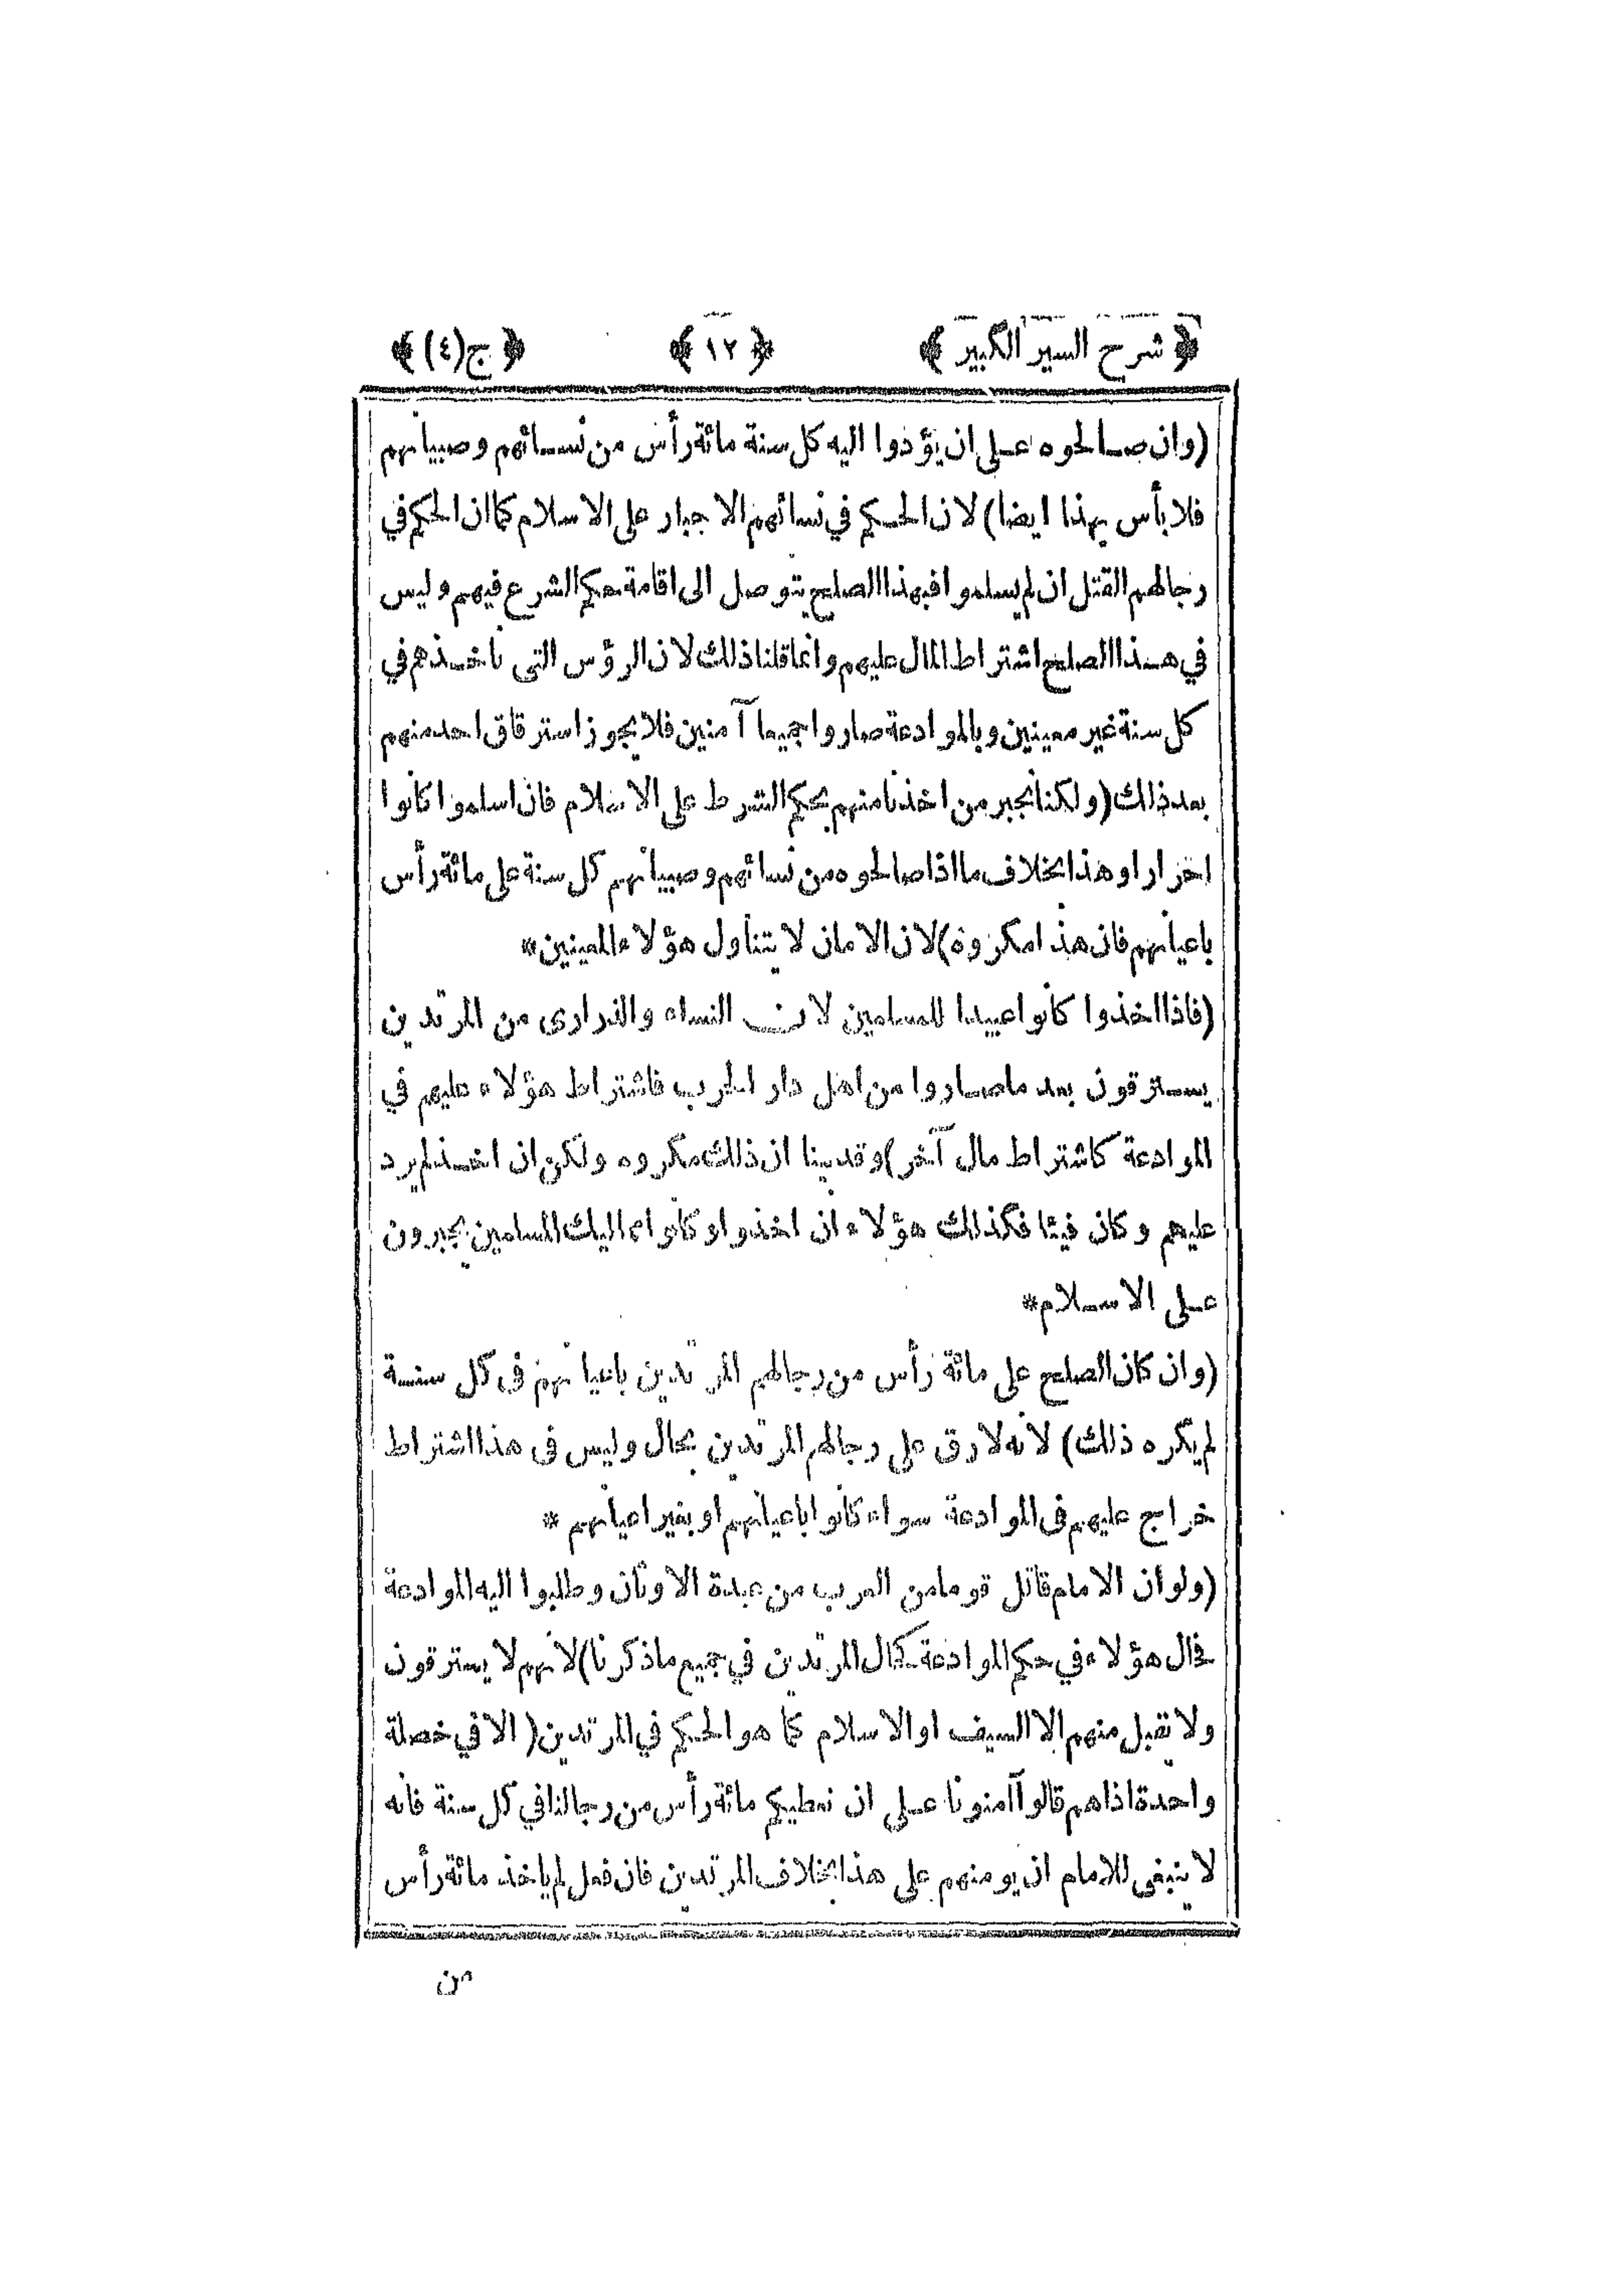 ﴿ شرح السير الكبير ﴾ ﴿ ١٢ ﴾ ﴿ ج(٤) ﴾
(وان صالحوه على ان يؤدوا اليه كل سنة مائة رأس من نسائهم وصبيانهم
فلا بأس بهذا ايضا) لان الحكم في نسائهم الاجبار على الاسلام كما ان الحكم في
رجالهم القتل ان لم يسلموا فبهذا الصلح يتوصل الى اقامة حكم الشرع فيهم وليس
في هذا الصلح اشتراط المال عليهم وانما قلنا ذلك لان الرؤس التى نأخذهم في
كل سنة غير معينين وبالموادعة صاروا جميعا آمنين فلا يجوز استرقاق احد منهم
بعد ذلك (ولكنا نجبر من اخذنا منهم بحكم الشرط على الاسلام فان اسلموا كانوا
احرارا وهذا بخلاف ما اذا صالحوه من نسائهم وصبيانهم كل سنة على مائة رأس
باعيانهم فان هذا مكروه) لان الامان لا يتناول هؤلاء المعينين*
(فاذا اخذوا كانوا عبيدا للمسلمين لان النساء والذرارى من المرتدين
يسترقون بعد ما صاروا من اهل دار الحرب فاشتراط هؤلاء عليهم في
الموادعة كاشتراط مال آخر) وقد بينا ان ذلك مكروه ولكن ان اخذ لم يرد
عليهم وكان فيئا فكذلك هؤلاء ان اخذوا وكانوا مماليك المسلمين يجبرون
على الاسلام*
(وان كان الصلح على مائة رأس من رجالهم المرتدين باعيانهم فى كل سنة
لم يكره ذلك) لانه لا رق على رجالهم المرتدين بحال وليس فى هذا اشتراط
خراج عليهم فى الموادعة سواء كانوا باعيانهم او بغير اعيانهم *
(ولو ان الامام قاتل قوما من العرب من عبدة الاوثان وطلبوا اليه الموادعة
فحال هؤلاء في حكم الموادعة كحال المرتدين في جميع ما ذكرنا) لانهم لا يسترقون
ولا يقبل منهم الا السيف او الاسلام كما هو الحكم في المرتدين (الا في خصلة
واحدة اذا هم قالوا آمنونا على ان نعطيكم مائة رأس من رجالنا في كل سنة فانه
لا ينبغى للامام ان يومنهم على هذا بخلاف المرتدين فان فعل لم ياخذ مائة رأس
من